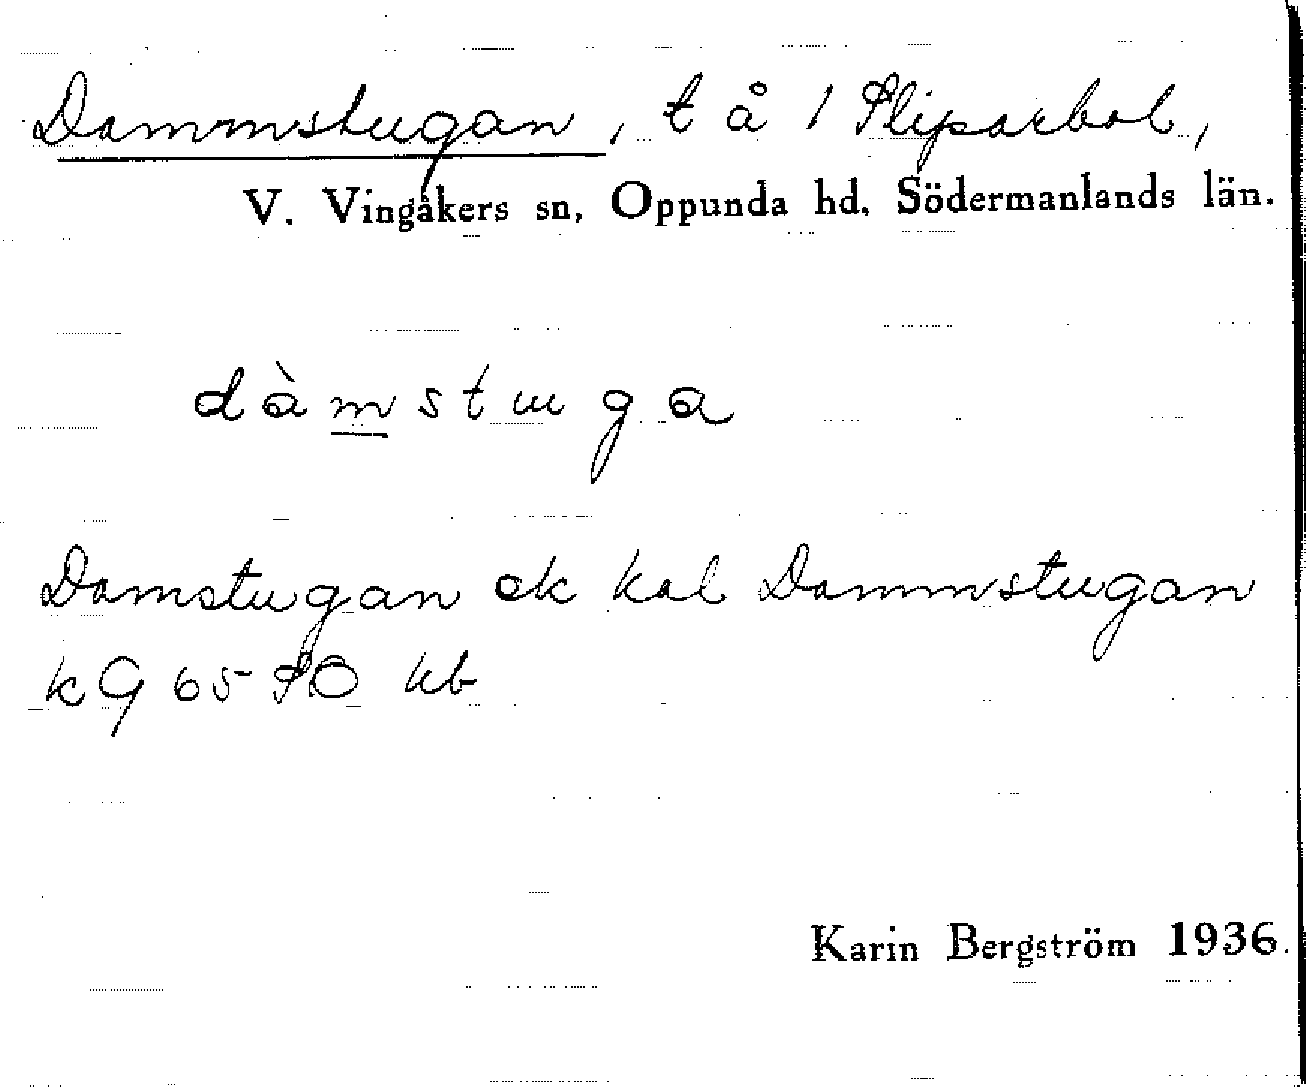 Dammstugan, t å 1 Sliparbol,
V. Vingåkers sn, Oppunda hd, Södermanlands län.
dàmstuga
Damstugan ek kal Dammstugan
kG 65 SO kb
Karin Bergström 1936.